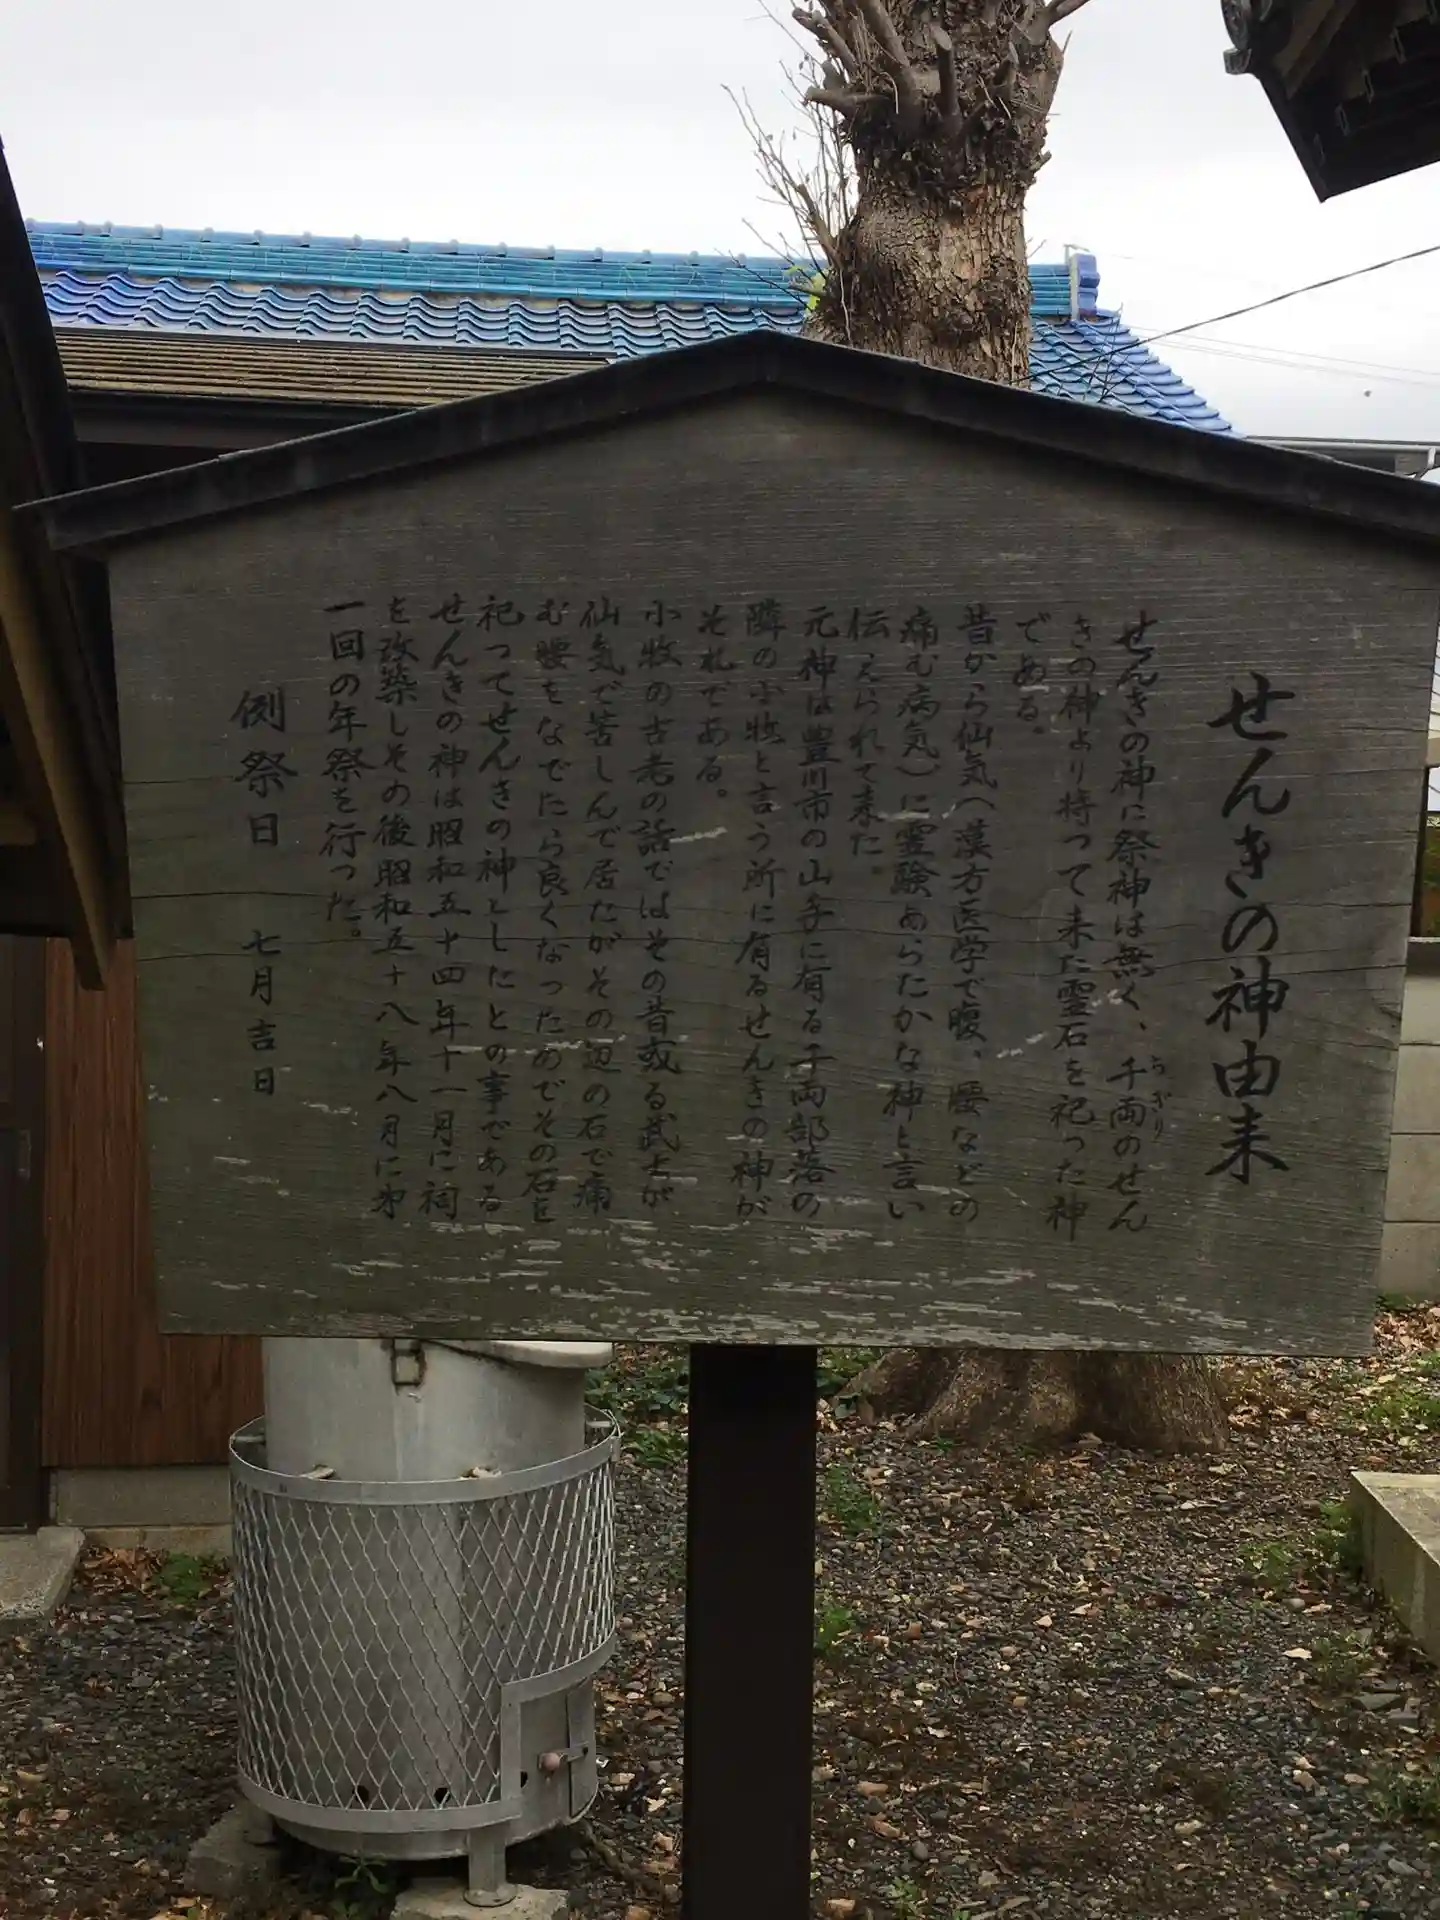 せんきの神由来
せんきの神に祭神は無く、千両のせん
ちぎり
きの神より持つて来た霊石を祀った神
である。
昔から仙気(漢方医学で腹、腰などの
痛む病気)に霊験あらたかな神と言い
伝えられて来た。
元神は豊川市の山手に有る千両部落の
隣の小牧と言う所に有るせんきの神が
それである。
小牧の古老の話ではその昔或る武士が
仙気で苦しんで居たがその辺の石で痛
む腰をなでたら良くなったのでその石を
祀ってせんきの神としたとの事である
せんきの神は昭和五十四年十一月に祠
を改築しその後昭和五十八年八月に才
一回の年祭を行った。
例祭日 七月吉日